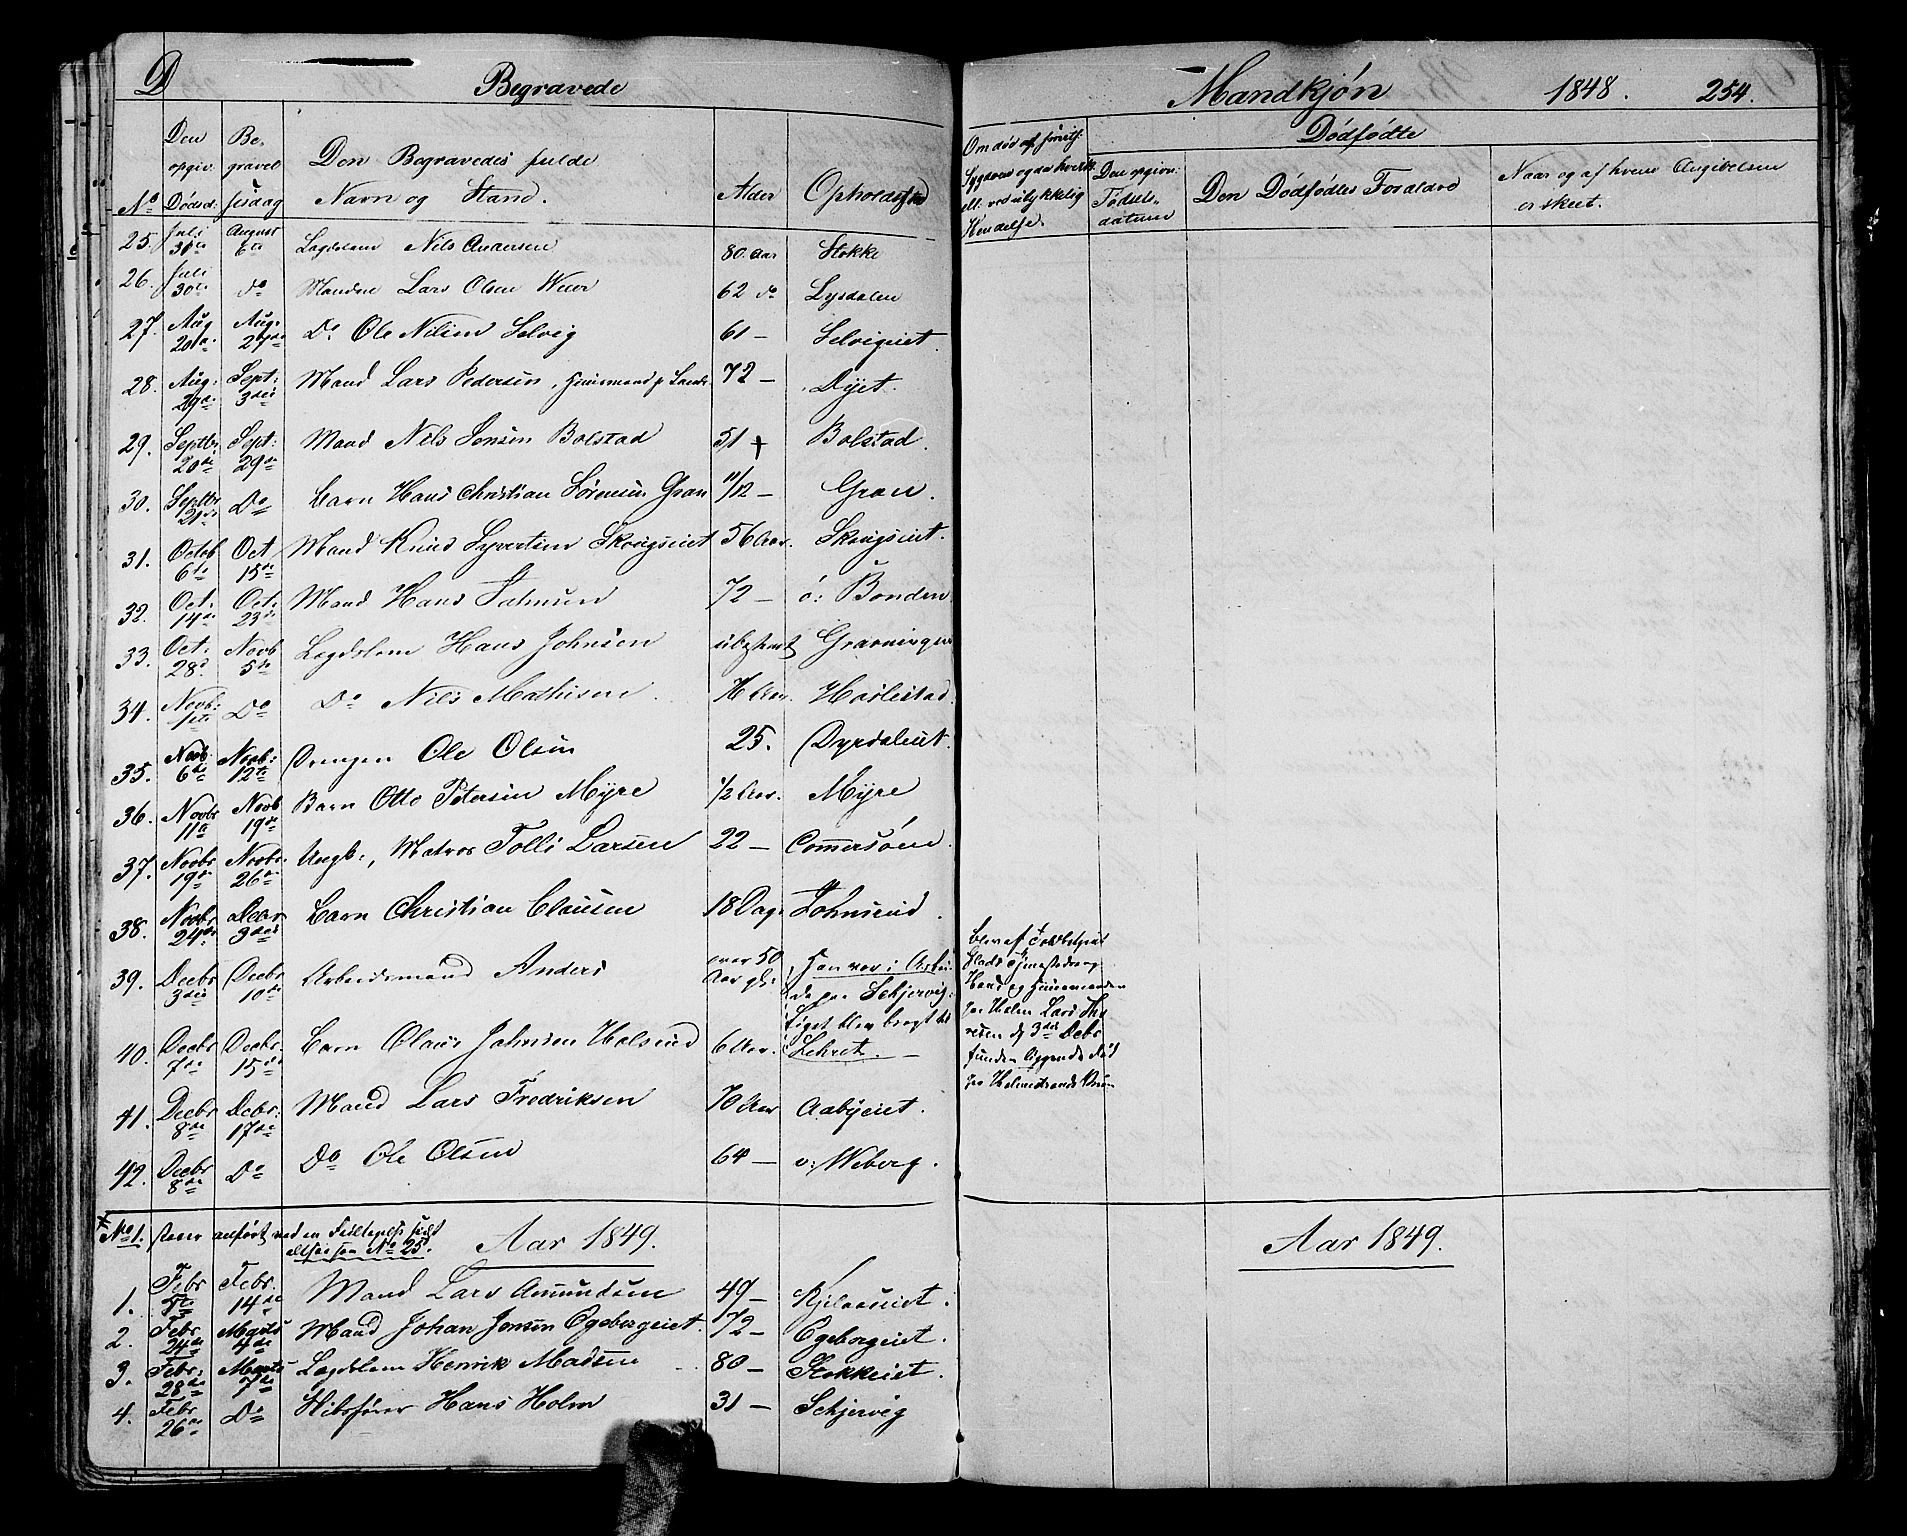 D Begravede
Mandkjøn 1848. 254.
No Den opgiv. Dødsd. Begravelsesdag Den Begravedes fulde Navn og Stand. Alder Opholdssted
Om død af Sygdom og
ell. ved ulykkelig
Hendelse.
Dødfødte
Den opgivn: Fødselsdatum Den Dødfødtes Foraldre Naar og af hvem Angivelsen er skeet.
25. Juli 30te August 6te Lægdslem Nils Andersen 80 Aar Stokke
26. Juli 30te Do Manden Lars Olsen Weer 62 do Lysdalen
27. Aug 20de Aug: 27de Do Ole Nilsen Selvig 61 — Selvigeiet.
28. Aug: 29de Sept: 3die Mand Lars Pedersen, Huusmand p 72 — Dyet.
29. Septbr. 20de Sept: 29de Mand Nils Jensen Bolstad 51 + Bolstad.
30. Septbr 21de Do Barn Hans Christian Sörensen Gran 11/12 — Gran.
31. Octob 6te Oct 15de Mand Knud Syvertsen Skougseiet 56 Aar. Skougseiet.
32. Oct: 14de Oct: 23de Mand Hans 72 — ö: Bonden
33. Oct. 28d. Novb 5te Lægdslem Hans Johnsen ubestemt Gravningen
34. Novb: 1ste Do Do Nils Mathisen 76 Aar. Haslestad.
35. Novb 6te Novb: 12te Drengen Ole Olsen 25. Dyrdaleiet.
36. Novbr 11te Novb 19de Barn Otto Petersen Myre 1/2 Aar. Myre
37. Novbr 19de Novbr. 26de Ungk:, Matros Tolle Larsen 22 — Commersöen.
38. Novbr 24de Decbr 3die Barn Christian Clausen 18 Dage Johnsrud.
39. Decbr 3die Decbr 10de Arbeidsmand Anders over 50 Aar gl: Han var i Arbeide paa Schjervig: Liget blev bragt til
blev af
og
Hans og Huusmanden
paa Holm Lars
d 3die Decbr
funden liggende död
paa Holmestrands
40. Decbr 7de Decbr. 15de Barn Olaus Johnsen Holsrud 6 Aar. Lehret. —
41. Decbr 8de Decbr: 17de Mand Lars Fredriksen 70 Aar Aabyeiet.
42. Decbr 8de Do Do Ole Olsen 64 — v: Weberg.
No 1. anført ved en
No 25. Aar 1849.
Aar 1849.
1. Febr 5te Febr. 14de Mand Lars Amundsen 49 —
2. Febr 24de Marts 4de Mand Johan Jensen Egebergeiet. 72 — Egebergeiet.
3. Febr: 28de Marts 7de Lægdslem Henrik Madsen 80 — Stokkeiet.
4. Febr 26de Do Skibsfører Hans Holm 31 — Schjervig